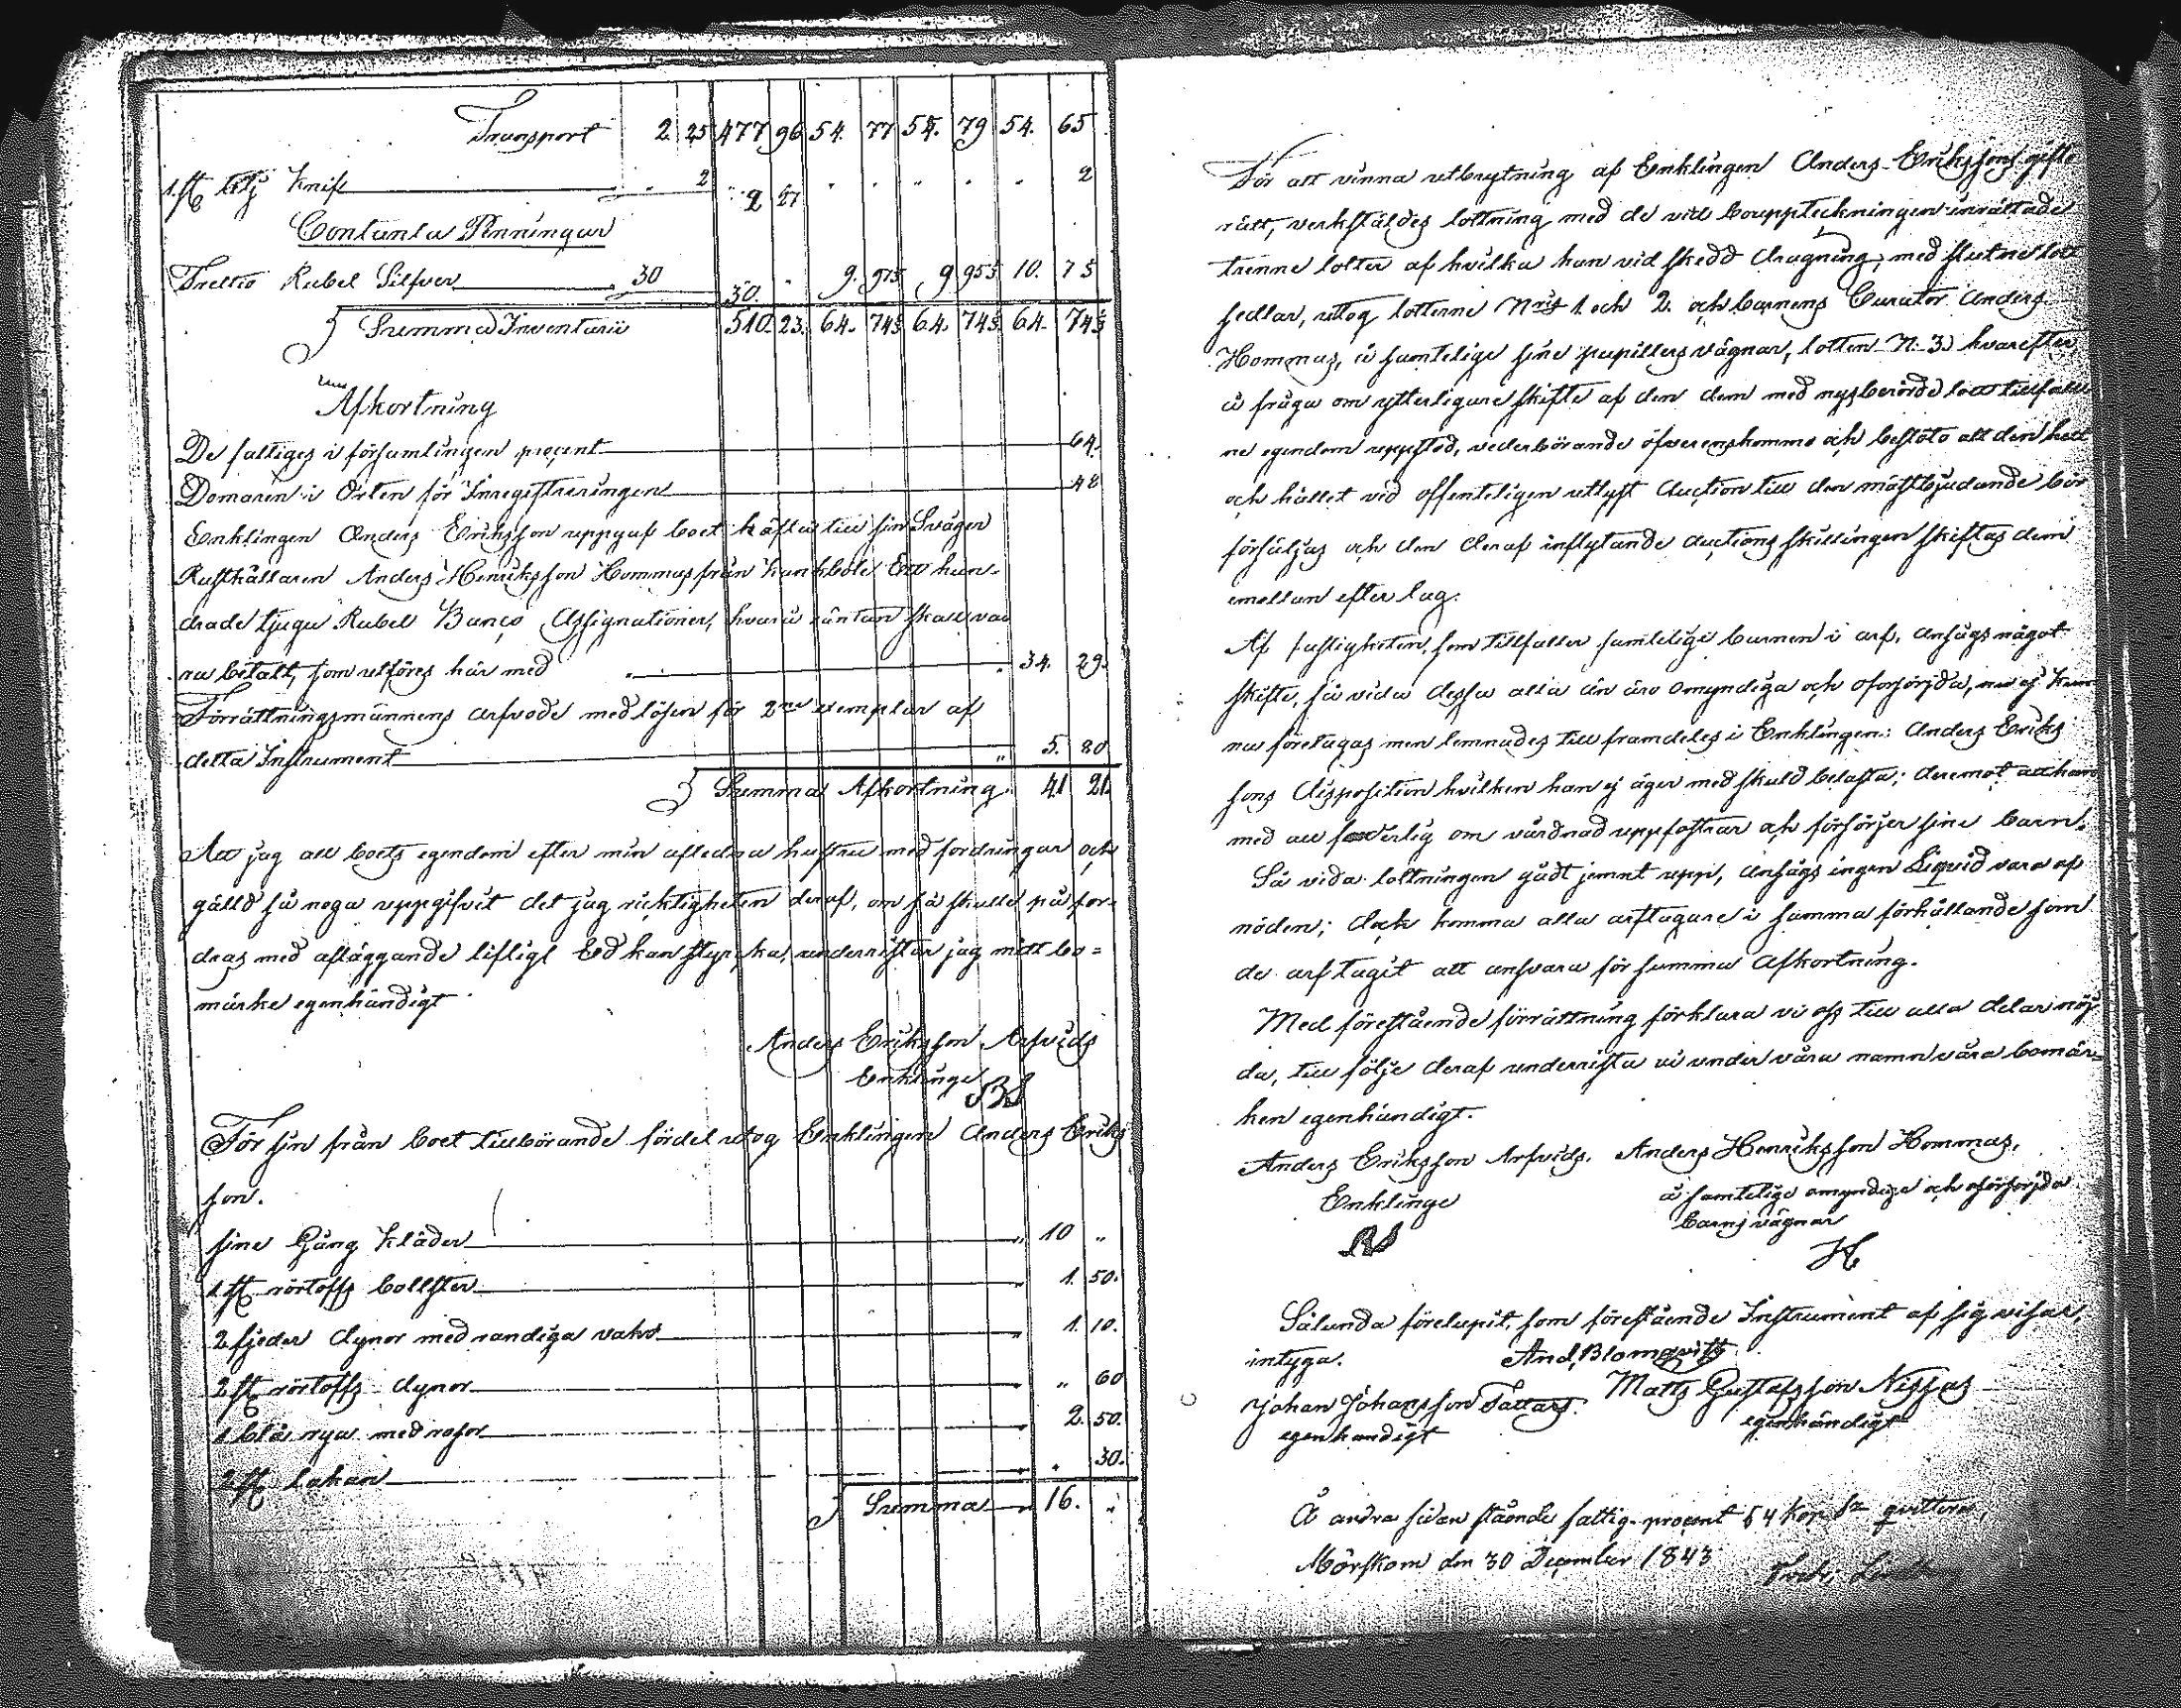 Transport 2 25 477 96 54. 77 54. 79 54. 65
1. st. Knif " 2 " 2 27 " " " " " 2
Contanta Penningar
Trettio Rubel Silfver 30 30. " 9. 97½ 9 95½ 10. 7½
Summa Inventarii 510. 23. 64. 74⅓ 64. 74⅓ 64. 74⅓
Afkortning
De fattiges i församlingen procent 64.
Domaren i Orten för Inregistreringen 48
Enklingen Anders Eriksson uppgaf boet häfta till sin Svåger
Rusthållaren Anders Henriksson Hommas från Kankböle Ett hun-
drade tjugu Rubel Banco Assignationer, hvarå räntan skall va
ra betalt, som utföres här med " 34. 29.
Förrättningsmännens arfvode med lösen för 2ne exemplar af
detta Instrument " 5. 80
Summa Afkortning 41 21.
Att jag all boets egendom efter min aflidna hustru med fordringar och
gälld så noga uppgifvit det jag ricktigheten deraf, om så skulle på for-
dras med afläggande lifligt Ed kan styrcka, underristar jag mitt bo=
märke egenhändigt
Anders Eriksson Arfvids
Enklinge
För sin från boet tillbörande fördel uttog Enklingen Anders Eriks
son.
sine Gång Kläder " 10 "
1 st. vörtoffs bollster " 1. 50.
2 fjeder dynor med randiga vahr " 1. 10.
2 st vörtoffs dynor " 60
1 blå rya med rosor 2. 50.
2 st. Lakan " 30.
Summa 16. "
För att vinna utbrytning af Enklingen Anders Erikssons gifto
rätt, verkställdes lottning med de vid bouppteckningen inrättade
trenne lotter af hvilka han vid skedd dragning, med slutne lott
sedlar, uttog lotterne Nris 1. och 2. och barnens Curator Anders
Hommas, å samtelige sine pupillers vägnar, lotten N. 3. hvarefter
å fråga om ytterligare skifte af den dem med nyssberörde lott tillfall
ne egendom uppstod, vederbörande öfverenskommo och beslöto att den helt
och hållet vid offenteligen utlyst auction till den mästbjudande bör
försäljas och den deraf inflytande auctions skillingen skiftas dem
emellan efter lag.
Af fastigheten, som tillfaller samtelige barnen i arf, ansågs något
skifte, så vida dessa alla än äro omyndiga och oförsörjda, nu ej kun
na företagas men lemnades till framdeles i Enklingen: Anders Eriks
sons disposition hvilken han ej äger med skuld belasta; deremot att han
med all faderlig om vårdnad uppfostrar och försörjer sine barn.
Så vida lottningen gådt jemnt upp, ansågs ingen Liqvid vara af
nöden; dock komma alla arftagare i samma förhållande som
de arf tagit att ansvara för summa Afkortning.
Med förestående förrättning förklara vi oss till alla delar nöj
da, till följe deraf underrista vi under våra namn våra bomär=
ken egenhändigt.
Anders Eriksson Arfvids. Anders Henriksson Hommas,
Enklinge å samtelige omyndige och oförsörjda
barns vägnar
H.
Sålunda förelupit, som förestående Instrument af sig visar,
intyga. And. Blomqvist
Johan Johansson Tattars. Matts Gustafsson Nissas
egenhändigt egenhändigt
Å andra sidan stående fattig procent 64 kop. Sr qvitteras,
Mörskom den 30 December 1843